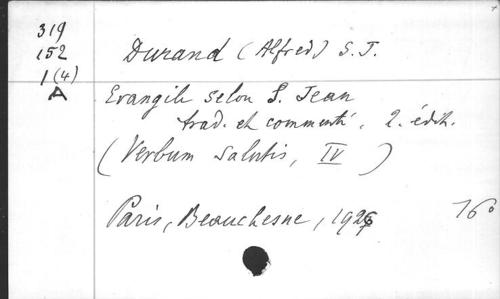 319
152
1(4)
A
Durand (Alfred) S. J.
Evangile selon S. Jean
trad. et commenté. 2. édit.
(Verbum salutis, IV)
Paris, Beauchesne,
16°